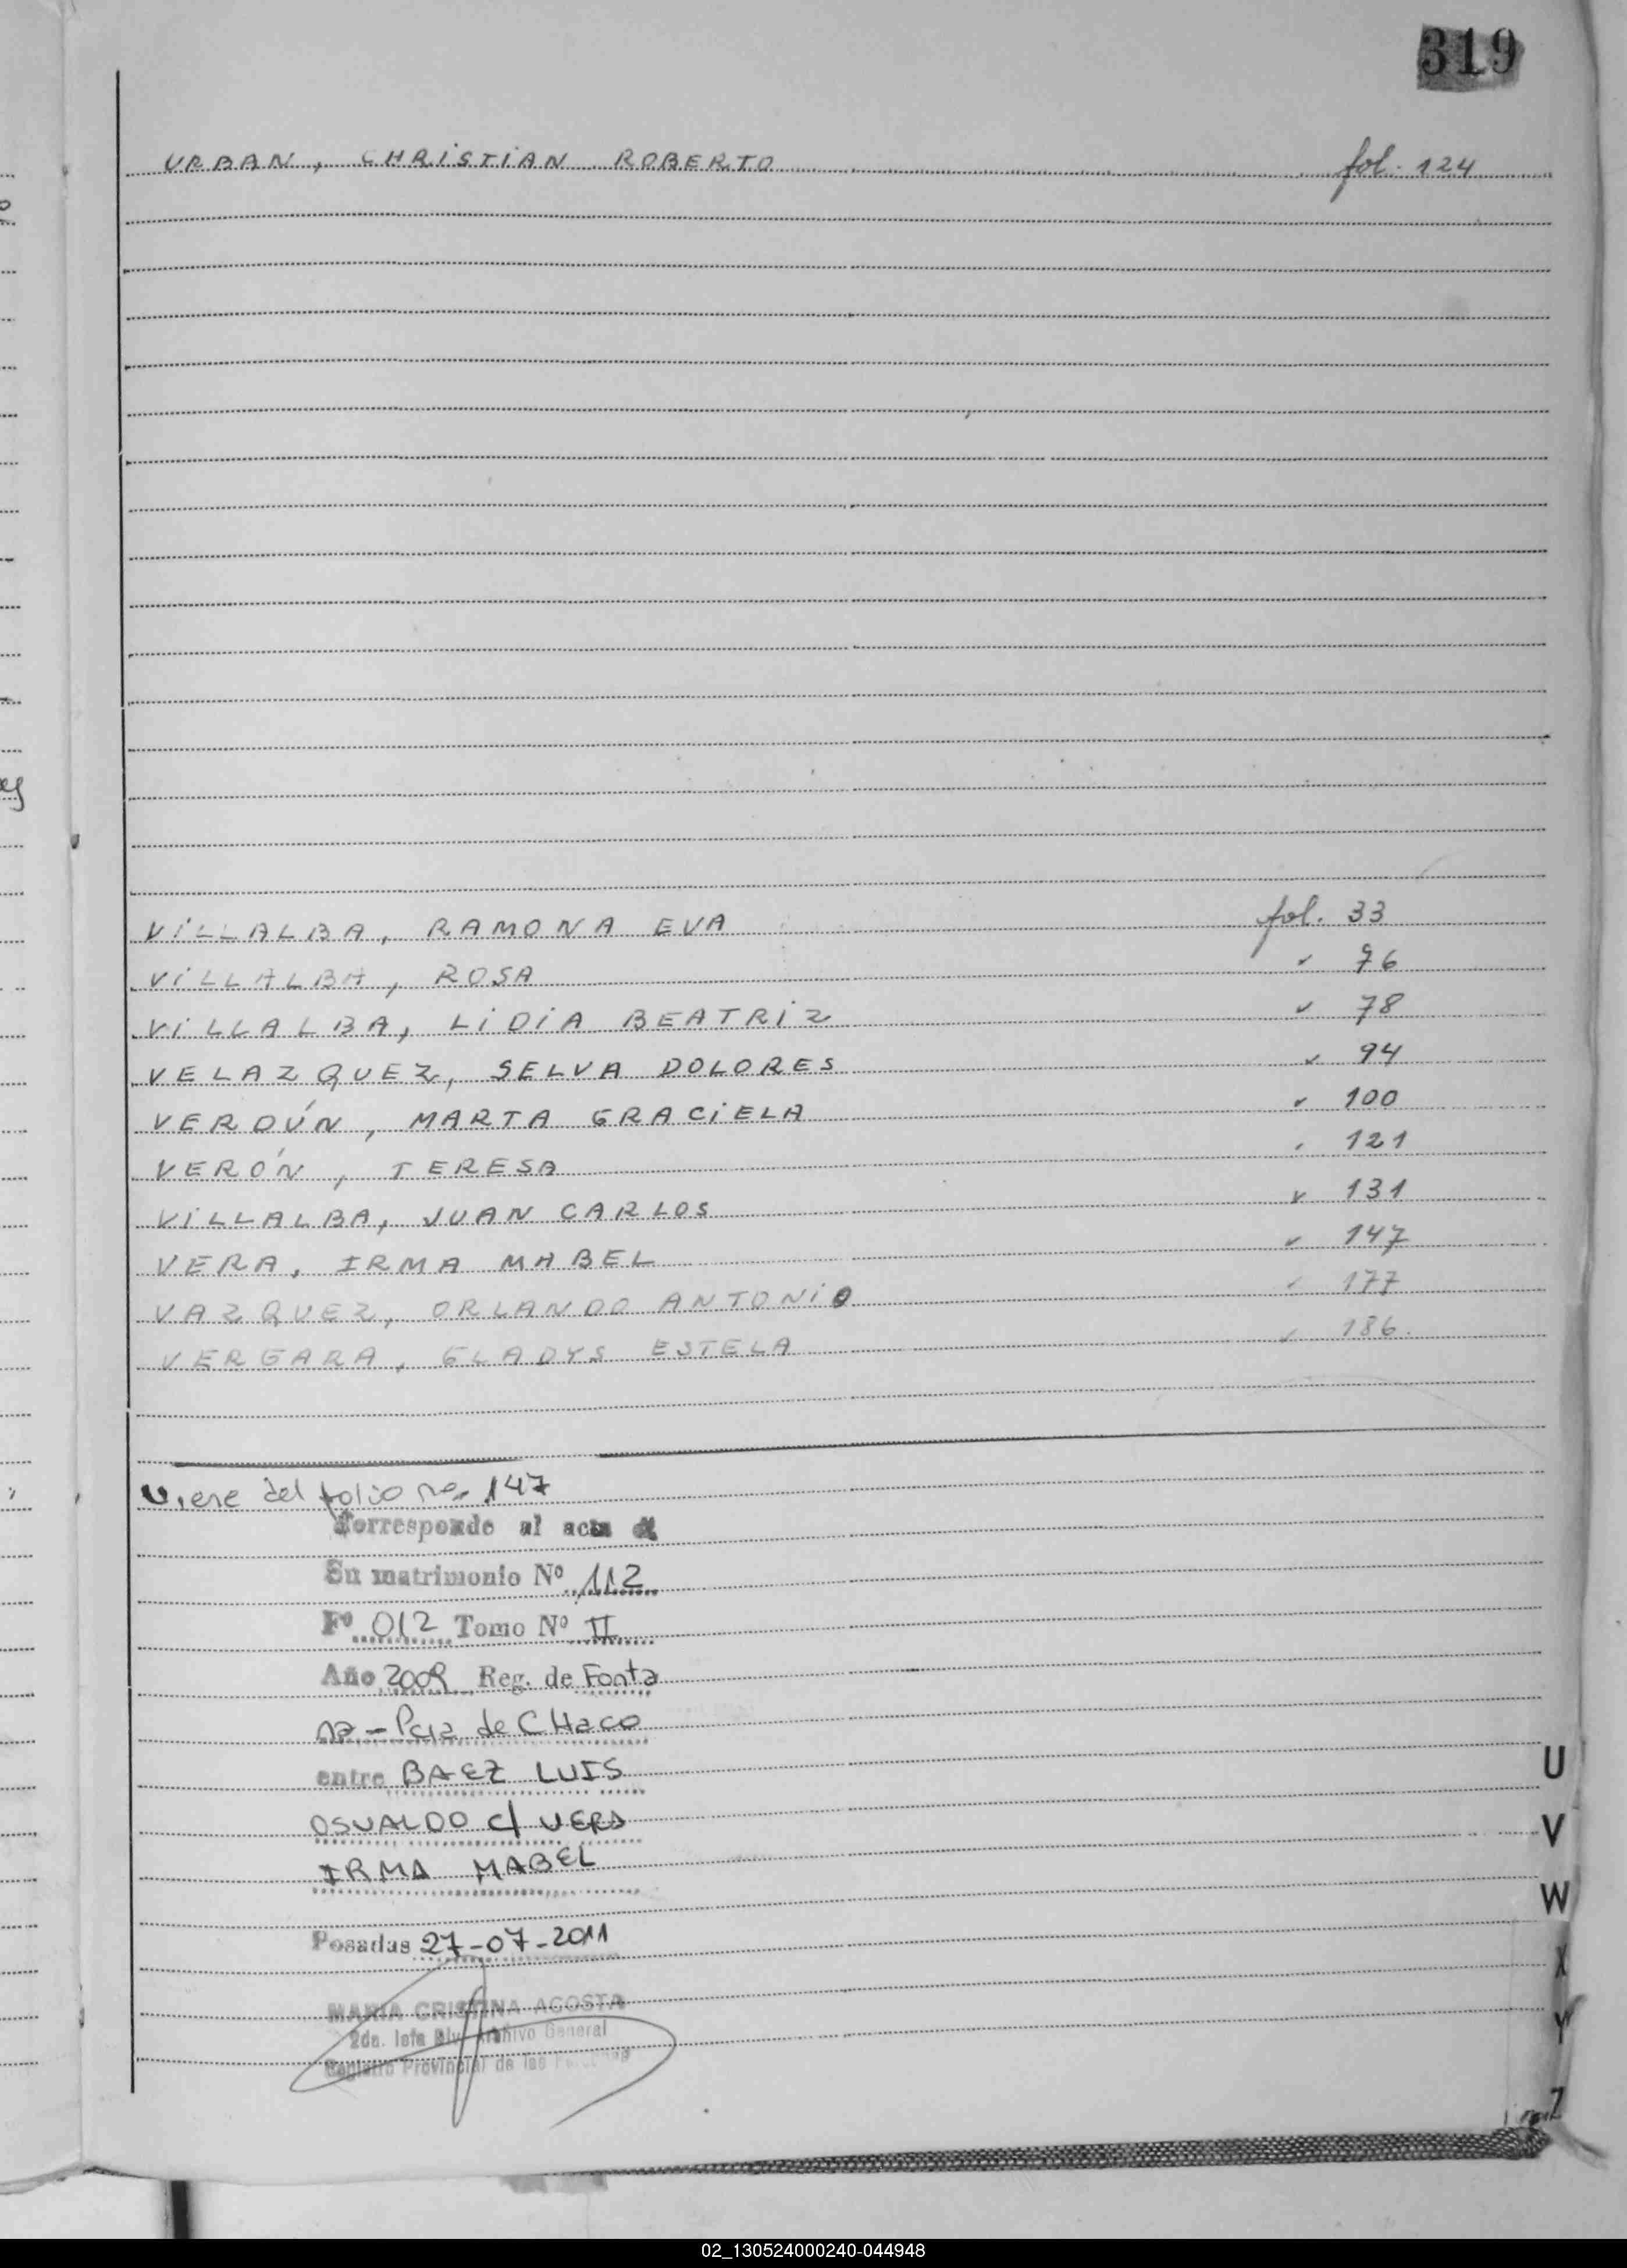 319
URBAN, CHRISTIAN ROBERTO fol. 124
VILLALBA, RAMONA EVA fol. 33
VILLALBA, ROSA " 76
VILLALBA, LIDIA BEATRIZ " 78
VELAZQUEZ, SELVA DOLORES " 94
VERDÚN, MARTA GRACIELA " 100
VERÓN, TERESA " 121
VILLALBA, JUAN CARLOS " 131
VERA, IRMA MABEL " 147
VAZQUEZ, ORLANDO ANTONIO " 177
VERGARA, GLADYS ESTELA " 186.
Viene del folio no. 147
Corresponde al acta
En matrimonio Nº 112
Fº 012 Tomo Nº II
Año 2009 Reg. de Fonta
na - Pcia de CHaco
entre BAEZ LUIS
OSVALDO c/ VERA
IRMA MABEL
Posadas 27-07-2011
MARIA CRISTINA ACOSTA
2da. Jefa Div. Archivo General
Registro Provincial de las Personas
U
V
W
X
Y
Z
02_130524000240-044948